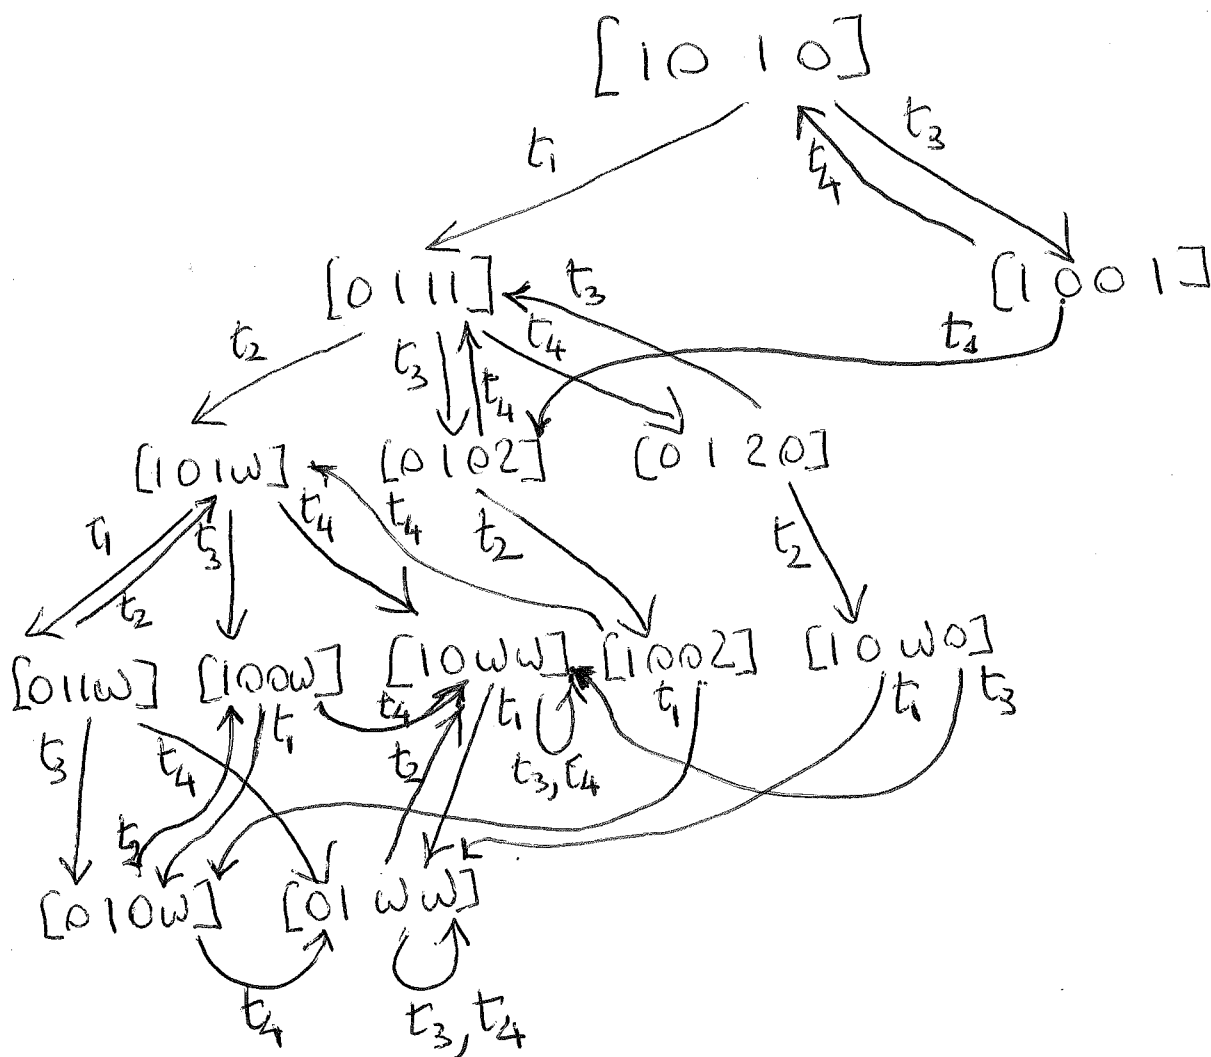 [1 0 1 0]
t1 t4 t3
[0 1 1 1] t3 [1 0 0 1]
t2 t3 t4 t4 t1
[1 0 1 ω] [0 1 0 2] [0 1 2 0]
t1 t2 t3 t4 t4 t2 t2
[0 1 1 ω] [1 0 0 ω] [1 0 ω ω] [1 0 0 2] [1 0 ω 0]
t3 t4 t1 t4 t2 t1 t3, t4 t1 t1 t3
t2
[0 1 0 ω] [0 1 ω ω]
t4 t3, t4